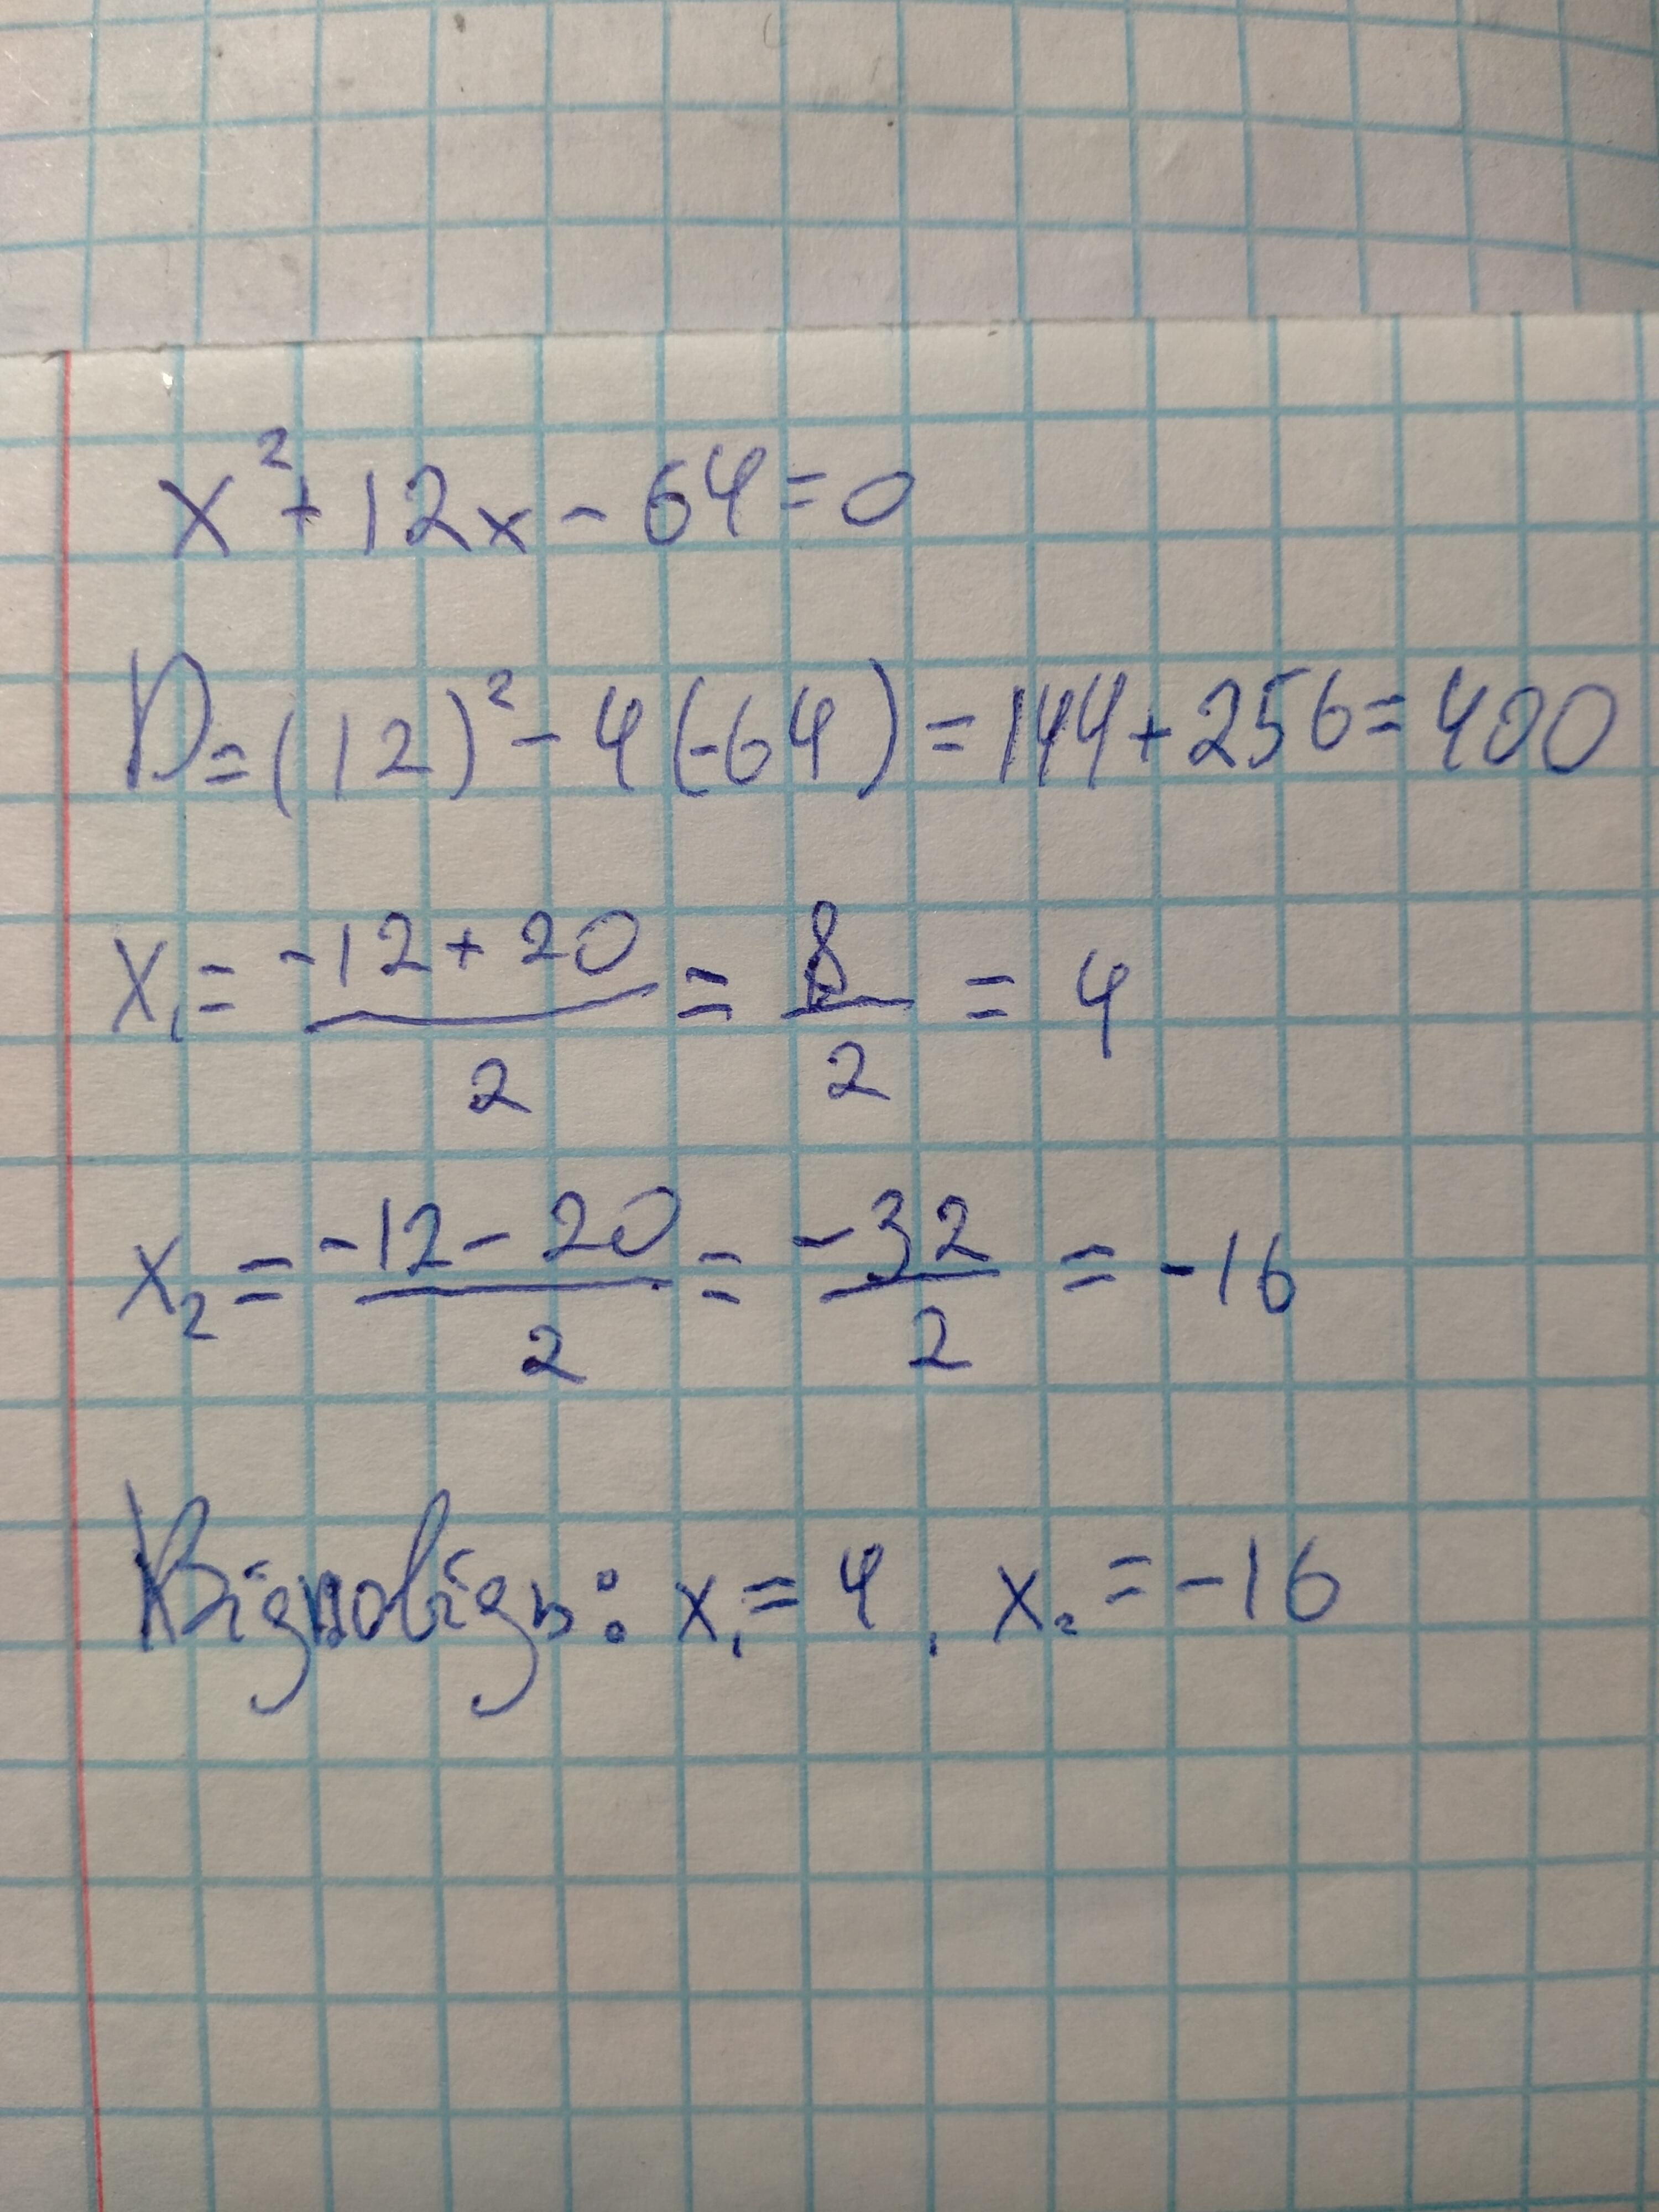 x² + 12x - 64 = 0
D = (12)² - 4(-64) = 144 + 256 = 400
x₁ = (-12 + 20)/2 = 8/2 = 4
x₂ = (-12 - 20)/2 = -32/2 = -16
Відповідь: x₁ = 4, x₂ = -16